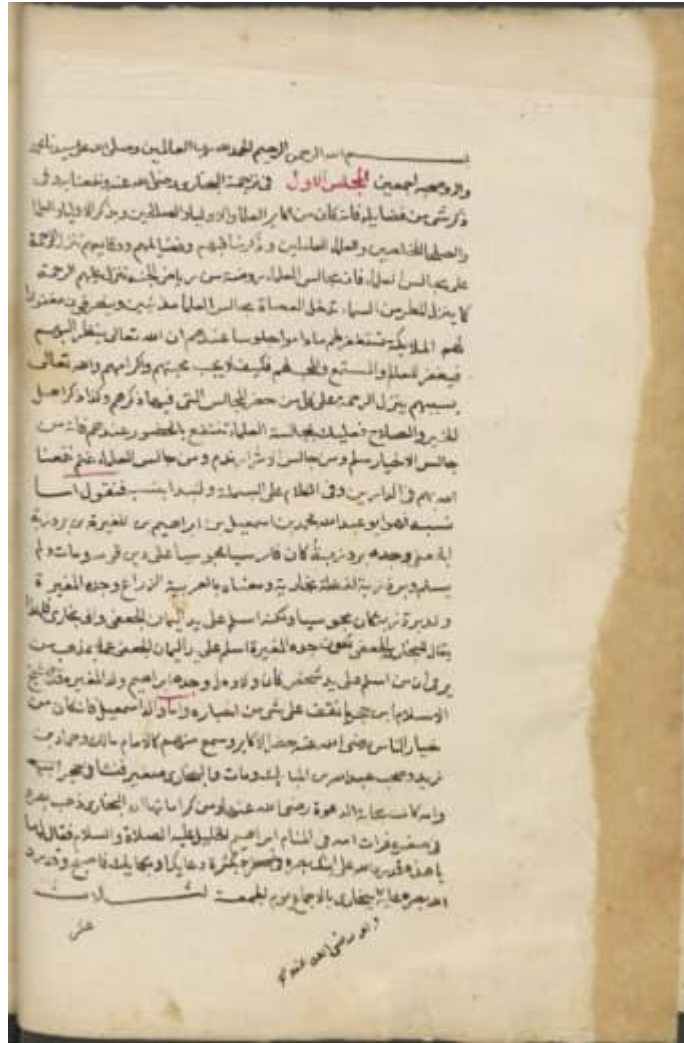 بسم الله الرحمن الرحيم الحمد لله رب العالمين وصلى الله على سيدنا محمد
واله وصحبه اجمعين المجلس الاول في ترجمة البخاري رضى الله عنه ونفعنا به وفي
ذكر شى من فضايله فانه كان من اكابر العلما والاوليا والصالحين وبذكر الاوليا والعلما
والصلحا المخلصين والعلماء العاملين وذكر مناقبهم وفضايلهم تنزل الرحمة
على مجالس العلماء فان مجالس العلماء روضة من رياض الجنة تنزل عليهم الرحمة
كما ينزل المطر من السماء تدخل العصاة مجالس العلما مذنبين وينصرفون مغفورا
لهم الملايكة تستغفر لهم ماداموا جلوسا عندهم ان الله تعالى ينظر اليهم
فيغفر للعالم والمستمع والمحب لهم فكيف لا يجب محبتهم واكرامهم والله تعالى
بسببهم ينزل الرحمة على كل من حضر المجالس التي فيها ذكرهم وكذا ذكر اهل
الخير والصلاح فعليك بمجالسة العلماء تنتفع بالحضور عندهم فانه من
جالس الاخيار سلم ومن جالس الاشرار ندم ومن جالس العلماء غنم نفعنا
الله بهم في الدارين وفي الكلام على البسملة ولنبدا بنسبه فنقول اما
نسبه فهو ابو عبد الله محمد بن اسمعيل بن ابراهيم بن المغيرة بن بردزبة
الجعفى وجده بردزبة كان فارسيا مجوسيا على دين قومه ومات ولم
يسلم وبردزبة لفظة بخارية ومعناه بالعربية الزراع وجده المغيرة
ولد بردزبة كان مجوسيا ولكنه اسلم على يد اليمان الجعفى والى بخارى فلهذا
يقال للبخارى الجعفى لكون جده المغيرة اسلم على يد اليمان الجعفى عملا بمذهب من
يرى ان من اسلم على يد شخص كان ولاوه له وجده ابراهيم ولد المغيرة قال شيخ
الاسلام ابن حجر لم نقف على شى من اخباره واما والده اسمعيل فانه كان من
خيار الناس رضى الله عنه حضر الاكابر وسمع منهم كالامام مالك وحماد بن
زيد وصحب عبد الله بن المبارك ومات والبخارى صغير فنشا في حجر امه
وامه كانت مجابة الدعوة رضى الله عنها ومن كراماتها ان البخارى ذهب بصره
في صغره فرات امه في المنام ابراهيم الخليل عليه الصلاة والسلام فقال لها
يا هذه قد رد الله على ابنك بصره بكثرة دعايك او بكايك فاصبح وقد رد
الله بصره عليه ببخارى بالاجماع يوم الجمعة لثلاث
عشر